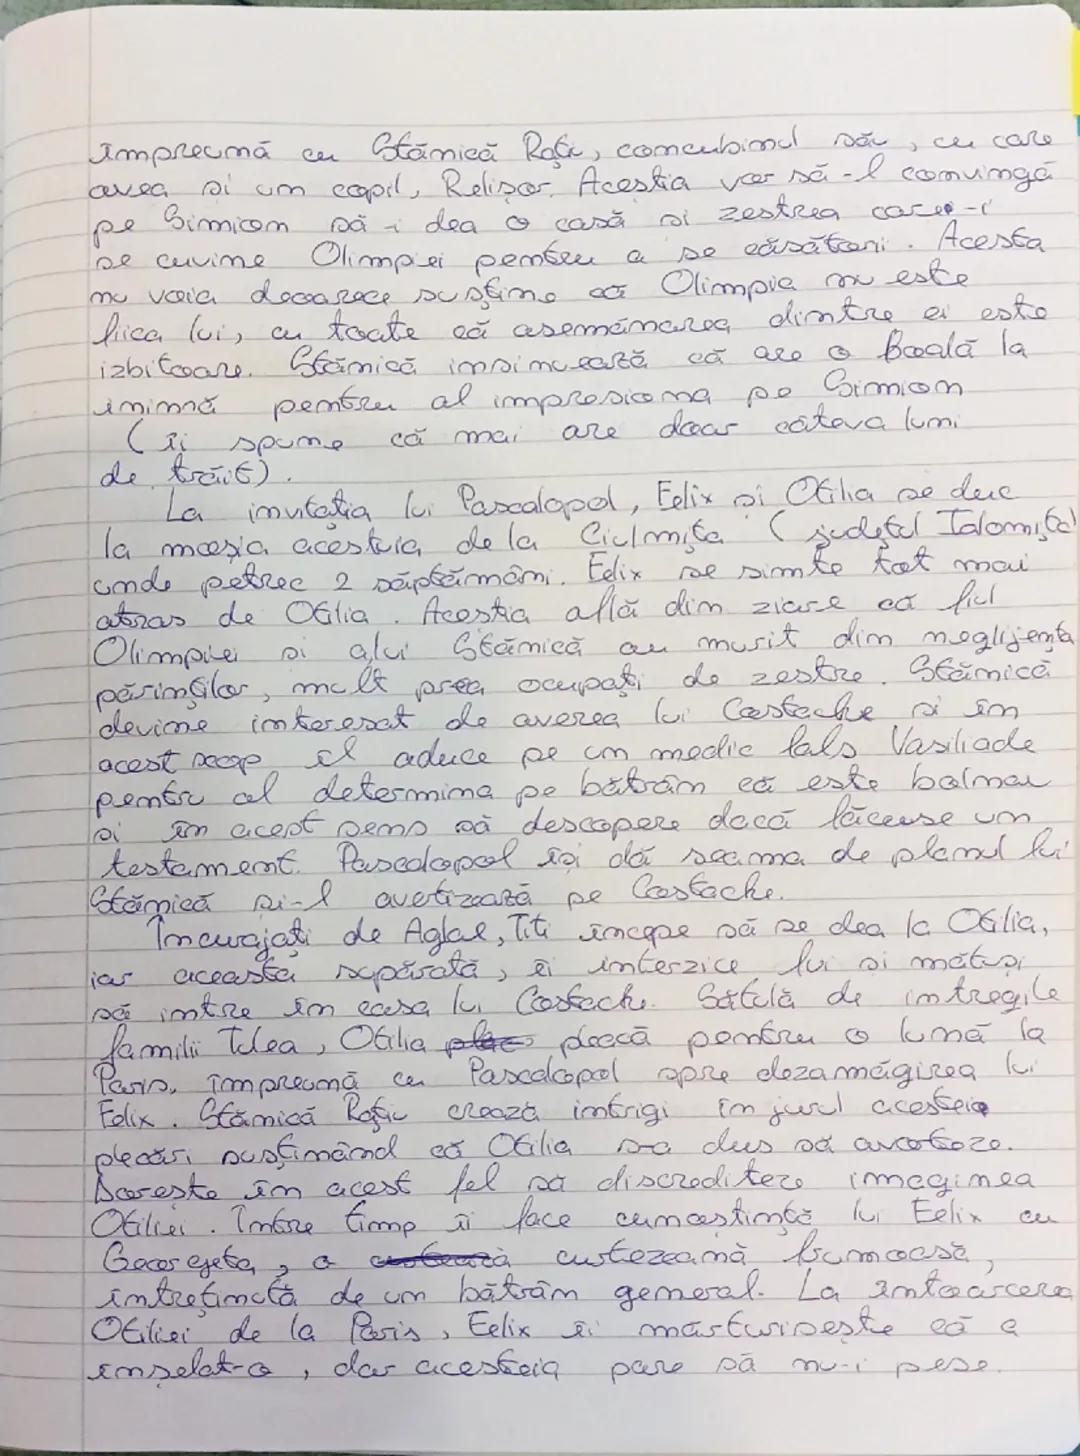 împreună cu Stănică Rațiu, concubinul său, cu care
avea și un copil, Relișor. Aceștia vor să-l convingă
pe Simion să-i dea o casă și zestrea care i-i
se cuvine Olimpiei pentru a se căsători. Acesta
nu voia deoarece susține că Olimpia nu este
fiica lui, cu toate că asemănarea dintre ei este
izbitoare. Stănică insinuează că are o boală la
inimnă pentru al impresiona pe Simion
(îi spune că mai are doar câteva luni
de trăit).
La invitația lui Pascalopol, Felix și Otilia se duc
la moșia acestuia de la Ciulnița (județul Ialomița)
unde petrec 2 săptămâni. Felix se simte tot mai
atras de Otilia. Aceștia află din ziare că fiul
Olimpiei și alui Stănică au murit din neglijența
părinților, mult prea ocupați de zestre. Stănică
devine interesat de averea lui Costache și în
acest scop îl aduce pe un medic fals Vasiliade
pentru al determina pe bătrân că este bolnav
și în acest sens să descopere dacă făcuse un
testament. Pascalopol își dă seama de planul lui
Stănică și-l avetizează pe Costache.
Încurajați de Aglae, Titi începe să se dea la Otilia,
iar aceasta supărată, îi interzice lui și mătuși
să intre în casa lui Costache. Sătulă de întregile
familii Tulea, Otilia pleacă pentru o lună la
Paris, împreună cu Pascalopol spre dezamăgirea lui
Felix. Stănică Rațiu crează intrigi în jurul acesteia
plecări susținând că Otilia s-a dus să avorteze.
Dorește în acest fel să discrediteze imaginea
Otiliei. Între timp îi face cunoștință lui Felix cu
Georgeta, o curtezeană frumoasă,
întreținută de un bătrân general. La întoarcerea
Otiliei de la Paris, Felix îi mărturisește că a
înșelat-o, dar acesteia pare să nu-i pese.